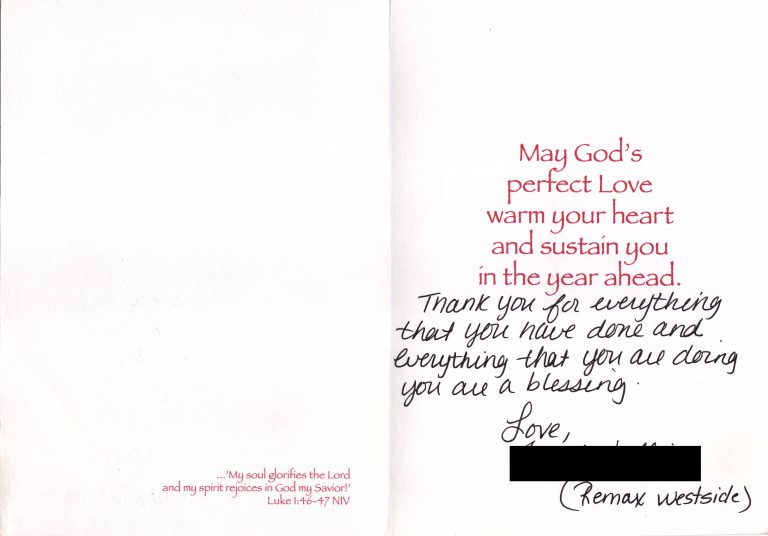 ...'My soul glorifies the Lord
and my spirit rejoices in God my Savior!'
Luke 1:46-47 NIV
May God's
perfect Love
warm your heart
and sustain you
in the year ahead.
Thank you for everything
that you have done and
everything that you are doing
you are a blessing.
Love,
(Remax Westside)